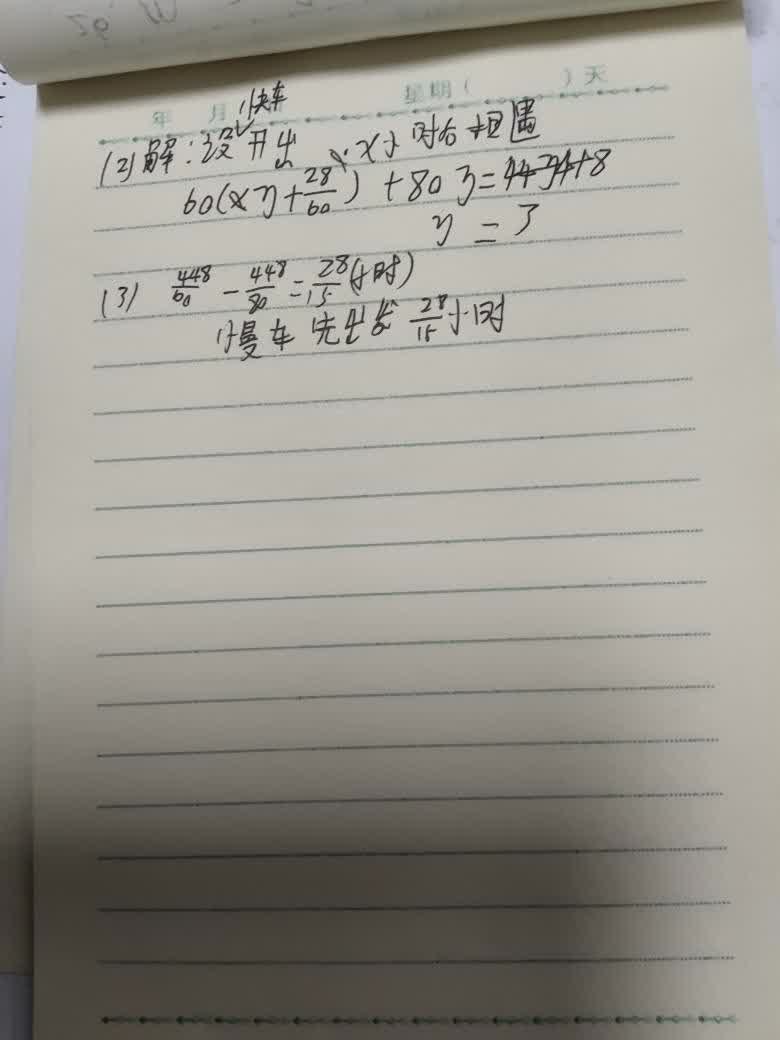 年 月 星期( )天
(2)解:设快车开出 x小时后相遇
60(y+28/60)+80y=448
y=3
(3) 448/60-448/80=28/15(小时)
慢车先出发28/15小时